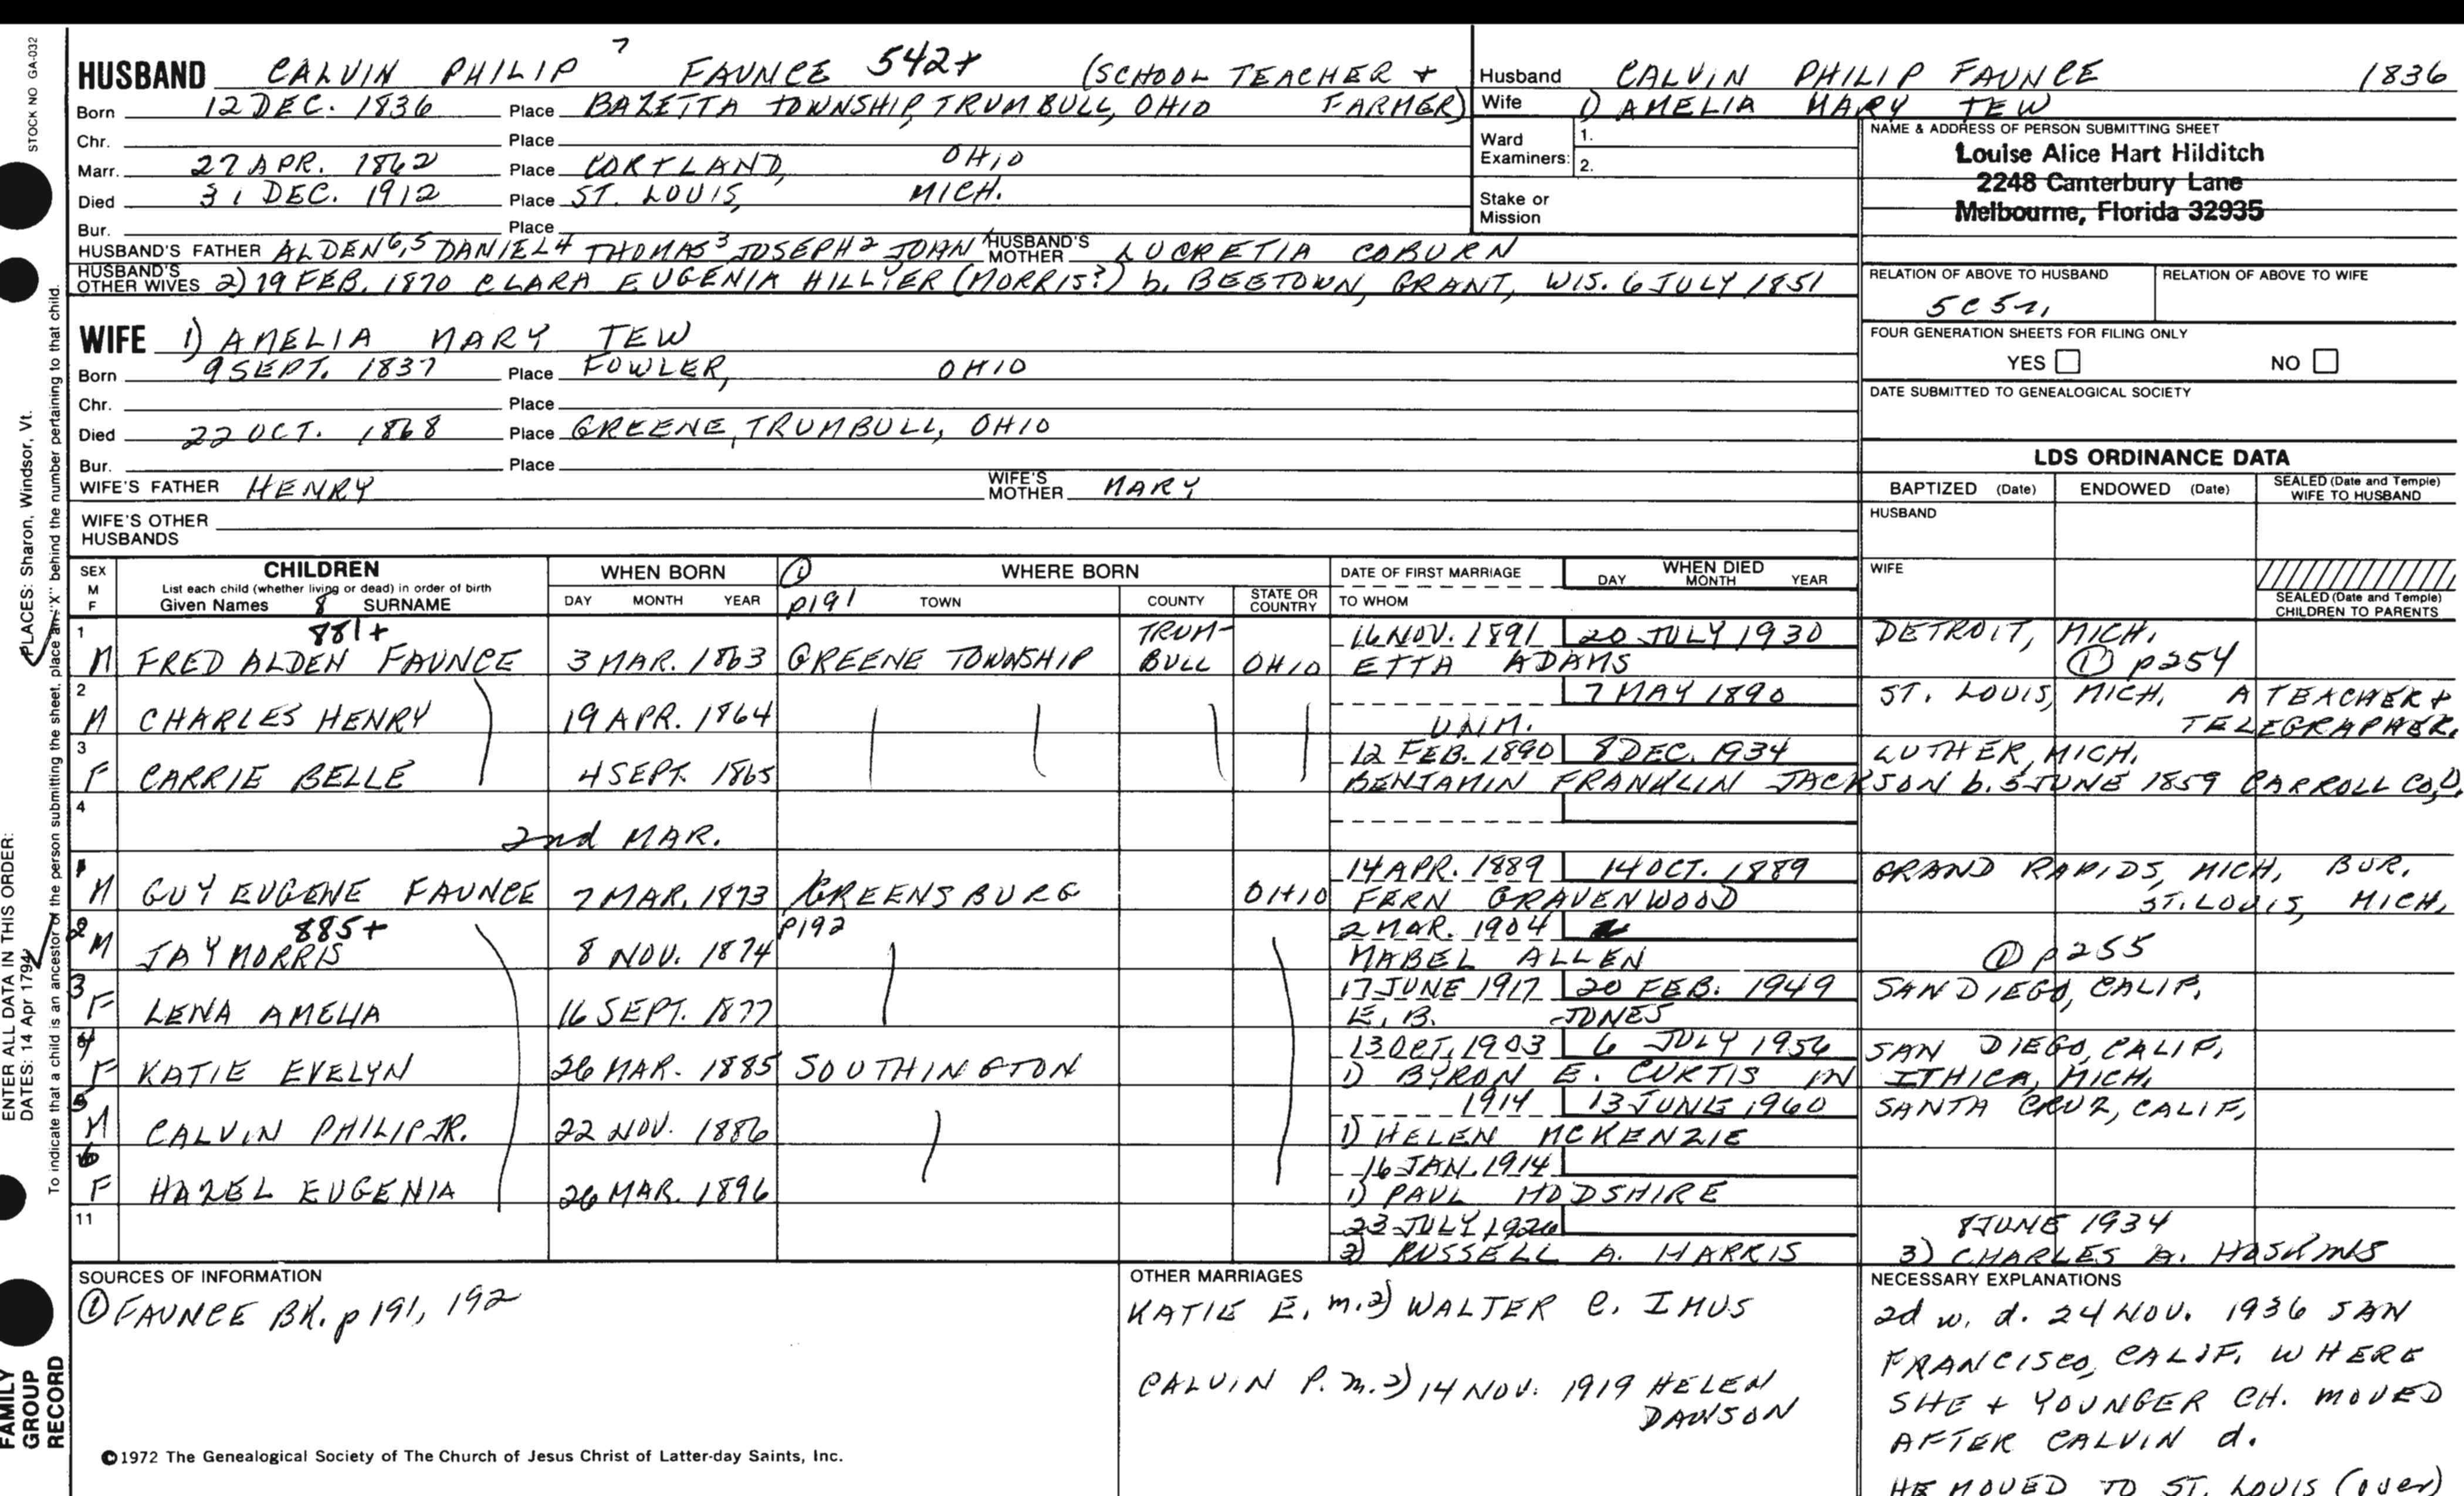 STOCK NO GA-032
HUSBAND CALVIN PHILIP 7 FAUNCE 542+ (SCHOOL TEACHER +
Born 12 DEC. 1836 Place BAZETTA TOWNSHIP, TRUMBULL, OHIO FARMER)
Chr. Place
Marr. 27 APR. 1862 Place CORTLAND, OHIO
Died 31 DEC. 1912 Place ST. LOUIS, MICH.
Bur. Place
HUSBAND'S FATHER ALDEN 6,5 DANIEL 4 THOMAS 3 JOSEPH 2 JOHN 1 HUSBAND'S MOTHER LUCRETIA COBURN
HUSBAND'S OTHER WIVES 2) 19 FEB. 1870 CLARA EUGENIA HILLYER (MORRIS?) b. BEETOWN, GRANT, WIS. 6 JULY 1851
Husband CALVIN PHILIP FAUNCE 1836
Wife 1) AMELIA MARY TEW
Ward Examiners: 1.
2.
Stake or Mission
NAME & ADDRESS OF PERSON SUBMITTING SHEET
Louise Alice Hart Hilditch
2248 Canterbury Lane
Melbourne, Florida 32935
RELATION OF ABOVE TO HUSBAND RELATION OF ABOVE TO WIFE
5C 5r,
FOUR GENERATION SHEETS FOR FILING ONLY
YES NO
DATE SUBMITTED TO GENEALOGICAL SOCIETY
WIFE 1) AMELIA MARY TEW
Born 9 SEPT. 1837 Place FOWLER, OHIO
Chr. Place
Died 22 OCT. 1868 Place GREENE, TRUMBULL, OHIO
Bur. Place
WIFE'S FATHER HENRY WIFE'S MOTHER MARY
WIFE'S OTHER HUSBANDS
LDS ORDINANCE DATA
BAPTIZED (Date) ENDOWED (Date) SEALED (Date and Temple) WIFE TO HUSBAND
HUSBAND
WIFE
SEALED (Date and Temple) CHILDREN TO PARENTS
SEX M F CHILDREN WHEN BORN ① WHERE BORN DATE OF FIRST MARRIAGE WHEN DIED
List each child (whether living or dead) in order of birth
Given Names 8 SURNAME DAY MONTH YEAR p191 TOWN COUNTY STATE OR COUNTRY TO WHOM DAY MONTH YEAR
1 881+ TRUM- 16 NOV. 1891 20 JULY 1930 DETROIT, MICH.
M FRED ALDEN FAUNCE 3 MAR. 1863 GREENE TOWNSHIP BULL OHIO ETTA ADAMS ① p254
2 7 MAY 1890 ST. LOUIS, MICH. A TEACHER +
M CHARLES HENRY 19 APR. 1864 UNM. TELEGRAPHER.
3 12 FEB. 1890 8 DEC. 1934 LUTHER, MICH.
F CARRIE BELLE 4 SEPT. 1865 BENJAMIN FRANKLIN JACKSON b. 5 JUNE 1859 CARROLL CO, O.
4
2nd MAR.
1 14 APR. 1889 14 OCT. 1889 GRAND RAPIDS, MICH, BUR.
M GUY EUGENE FAUNCE 7 MAR. 1873 GREENSBURG OHIO FERN GRAVENWOOD ST. LOUIS, MICH.
2 885+ p192 2 MAR. 1904
M JAY MORRIS 8 NOV. 1874 MABEL ALLEN ① p255
3 17 JUNE 1917 20 FEB. 1949 SAN DIEGO, CALIF.
F LENA AMELIA 16 SEPT. 1877 E. B. JONES
4 13 OCT. 1903 6 JULY 1956 SAN DIEGO, CALIF.
F KATIE EVELYN 26 MAR. 1885 SOUTHINGTON 1) BYRON E. CURTIS IN ITHICA, MICH.
5 1914 13 JUNE 1960 SANTA CRUZ, CALIF,
M CALVIN PHILIP JR. 22 NOV. 1886 1) HELEN MCKENZIE
6 16 JAN. 1914
F HAZEL EUGENIA 26 MAR. 1896 1) PAUL HODSHIRE
11 23 JULY 1926 8 JUNE 1934
2) RUSSELL A. HARRIS 3) CHARLES A. HOSKINS
SOURCES OF INFORMATION
① FAUNCE BK. p 191, 192
OTHER MARRIAGES
KATIE E. m. 2) WALTER C. IMUS
CALVIN P. m. 2) 14 NOV. 1919 HELEN
DAWSON
NECESSARY EXPLANATIONS
2d w. d. 24 NOV. 1936 SAN
FRANCISCO, CALIF. WHERE
SHE + YOUNGER CH. MOVED
AFTER CALVIN d.
HE MOVED TO ST. LOUIS (over)
©1972 The Genealogical Society of The Church of Jesus Christ of Latter-day Saints, Inc.
FAMILY GROUP RECORD
ENTER ALL DATA IN THIS ORDER:
DATES: 14 Apr 1794
PLACES: Sharon, Windsor, Vt.
To indicate that a child is an ancestor of the person submitting the sheet, place an "X" behind the number pertaining to that child.